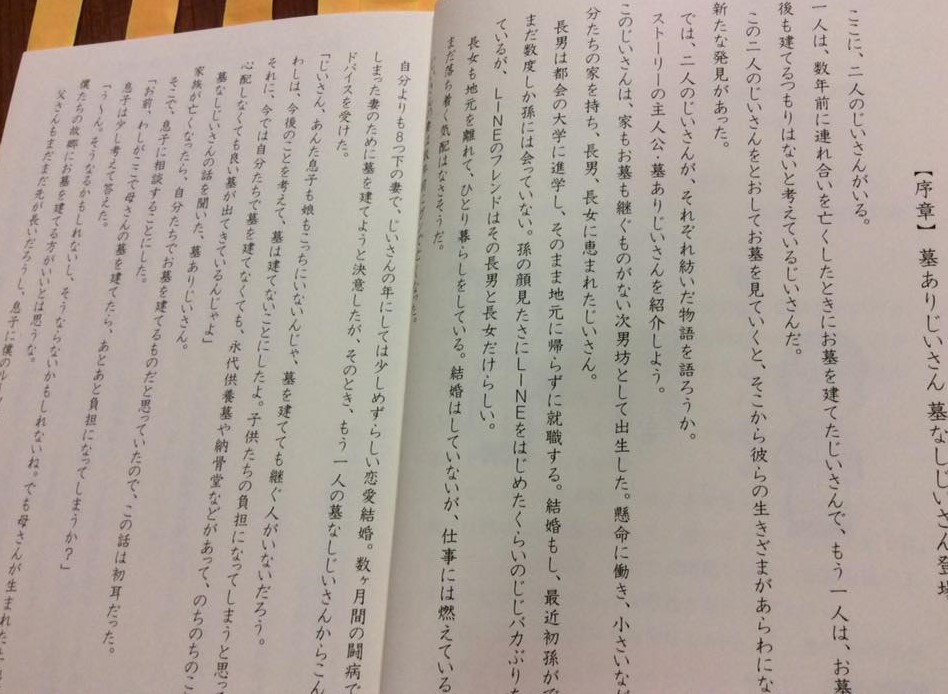 【序章】 墓ありじいさん 墓なしじいさん登場
ここに、二人のじいさんがいる。
一人は、数年前に連れ合いを亡くしたときにお墓を建てたじいさんで、もう一人は、お墓
後も建てるつもりはないと考えているじいさんだ。
この二人のじいさんをとおして、お墓を見ていくと、そこから彼らの生きざまがあらわにな
新たな発見があった。
では、二人のじいさんが、それぞれ紡いだ物語を語ろうか。
ストーリーの主人公、墓ありじいさんを紹介しよう。
このじいさんは、家もお墓も継ぐものがない次男坊として出生した。懸命に働き、小さいなが
分たちの家を持ち、長男、長女に恵まれたじいさん。
長男は都会の大学に進学し、そのまま地元に帰らずに就職する。結婚もし、最近初孫がで
まだ数度しか孫には会っていない。孫の顔見たさにLINEをはじめたくらいのじじバカぶりを
ているが、LINEのフレンドはその長男と長女だけらしい。
長女も地元を離れて、ひとり暮らしをしている。結婚はしていないが、仕事には燃えている
まだ落ち着く気配はなさそうだ。
自分よりも8つ下の妻で、じいさんの年にしては少しめずらしい恋愛結婚。数ヶ月間の闘病で
しまった妻のために墓を建てようと決意したが、そのとき、もう一人の墓なしじいさんからこん
ドバイスを受けた。
「じいさん、あんた息子も娘もこっちにいないんじゃ、墓を建てても継ぐ人がいないだろう。
わしは、今後のことを考えて、墓は建てないことにしたよ。子供たちの負担になってしまうと思っ
それに、今では自分たちで墓を建てなくても、永代供養墓や納骨堂などがあって、のちのちのこ
心配しなくても良い墓が出てきているんじゃよ」
墓なしじいさんの話を聞いた、墓ありじいさん。
家族が亡くなったら、自分たちでお墓を建てるものだと思っていたので、この話は初耳だった。
そこで、息子に相談することにした。
「お前、わしがここで母さんの墓を建てたら、あとあと負担になってしまうか？」
息子は少し考えて答えた。
「う〜ん。そうなるかもしれないし、そうならないかもしれないね。でも母さんが生まれた
僕たちの故郷にお墓を建てる方がいいとは思うな。
父さんもまだまだ先が長いだろうし、息子に僕のル